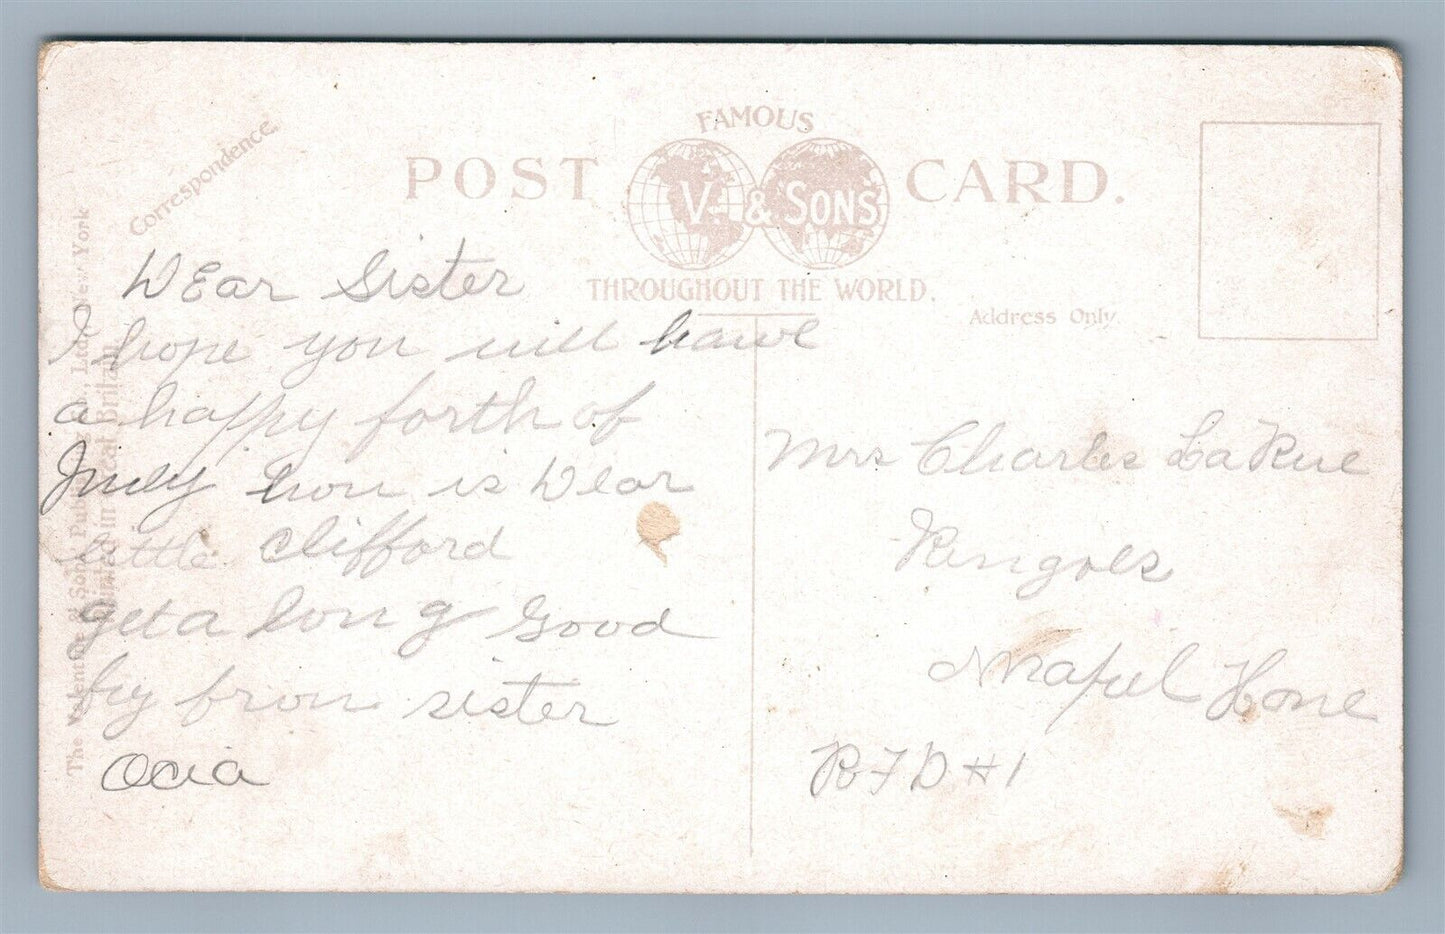 FAMOUS
POST CARD.
V. & SONS
THROUGHOUT THE WORLD.
Correspondence.
Address Only
The Valentine & Sons Publishing Co., Ltd., New York
Printed in Great Britain
DEar Sister
I hope you will have
a happy forth of
July how is Dear
little Clifford
get a long Good
by from sister
Ocia
Mrs Charles LaRue
Ringoes
R F D # 1